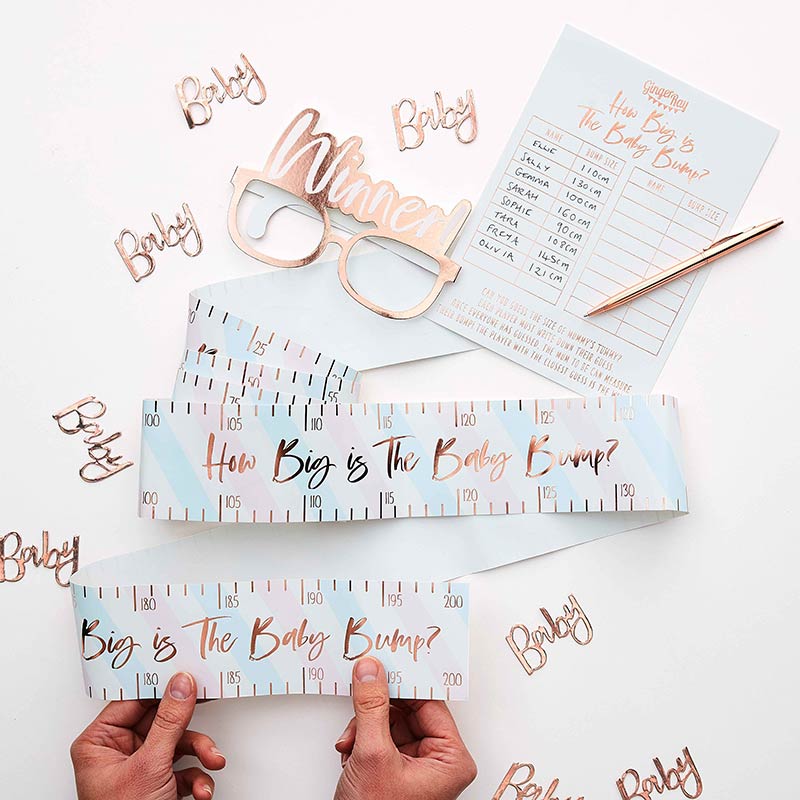 Baby
Baby
Winner
Baby
GingerRay
How Big is
The Baby Bump?
NAME BUMP SIZE
ELLIE 110cm
SALLY 130cm
GEMMA 100cm
SARAH 160cm
SOPHIE 90cm
TARA 108cm
FREYA 145cm
OLIVIA 121cm
NAME BUMP SIZE
CAN YOU GUESS THE SIZE OF MUMMY'S TUMMY?
EACH PLAYER MUST WRITE DOWN THEIR GUESS.
ONCE EVERYONE HAS GUESSED, THE MUM TO BE CAN MEASURE
THEIR BUMP! THE PLAYER WITH THE CLOSEST GUESS IS THE
25
50 55
75
100 105 110 115 120 125 130
How Big is The Baby Bump?
100 105 110 115 120 125 130
Baby
Baby
180 185 190 195 200
Big is The Baby Bump?
180 185 190 195 200
Baby
Baby
Baby